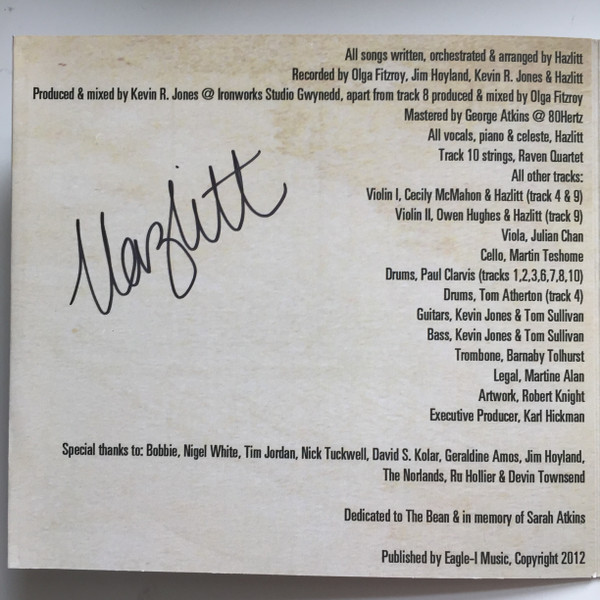 All songs written, orchestrated & arranged by Hazlitt
Recorded by Olga Fitzroy, Jim Hoyland, Kevin R. Jones & Hazlitt
Produced & mixed by Kevin R. Jones @ Ironworks Studio Gwynedd, apart from track 8 produced & mixed by Olga Fitzroy
Mastered by George Atkins @ 80Hertz
All vocals, piano & celeste, Hazlitt
Track 10 strings, Raven Quartet
All other tracks:
Violin I, Cecily McMahon & Hazlitt (track 4 & 9)
Violin II, Owen Hughes & Hazlitt (track 9)
Viola, Julian Chan
Cello, Martin Teshome
Drums, Paul Clarvis (tracks 1,2,3,6,7,8,10)
Drums, Tom Atherton (track 4)
Guitars, Kevin Jones & Tom Sullivan
Bass, Kevin Jones & Tom Sullivan
Trombone, Barnaby Tolhurst
Legal, Martine Alan
Artwork, Robert Knight
Executive Producer, Karl Hickman
Hazlitt
Special thanks to: Bobbie, Nigel White, Tim Jordan, Nick Tuckwell, David S. Kolar, Geraldine Amos, Jim Hoyland,
The Norlands, Ru Hollier & Devin Townsend
Dedicated to The Bean & in memory of Sarah Atkins
Published by Eagle-I Music, Copyright 2012